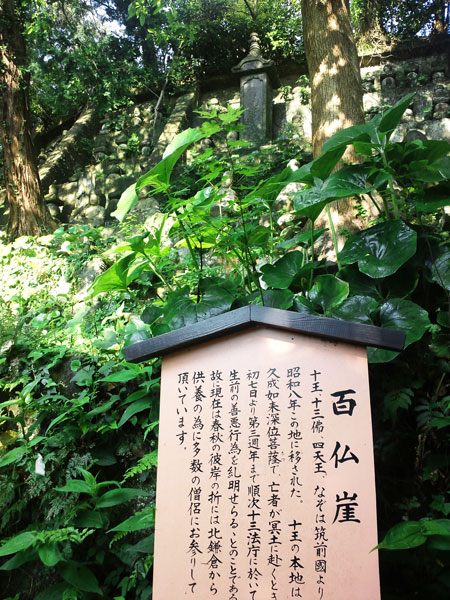 百仏崖
十王、十三佛、四天王、なぞは筑前國より
昭和八年この地に移された。 十王の本地は
久成如来深位菩薩で、亡者が冥土に赴くとき
初七日より第三週年まで順次十三法庁に於いて
生前の善悪行為を糺明せらるゝとのことである
故に現在は春秋の彼岸の折には北鎌倉から
供養の為に多数の僧侶にお参りして
頂いています。